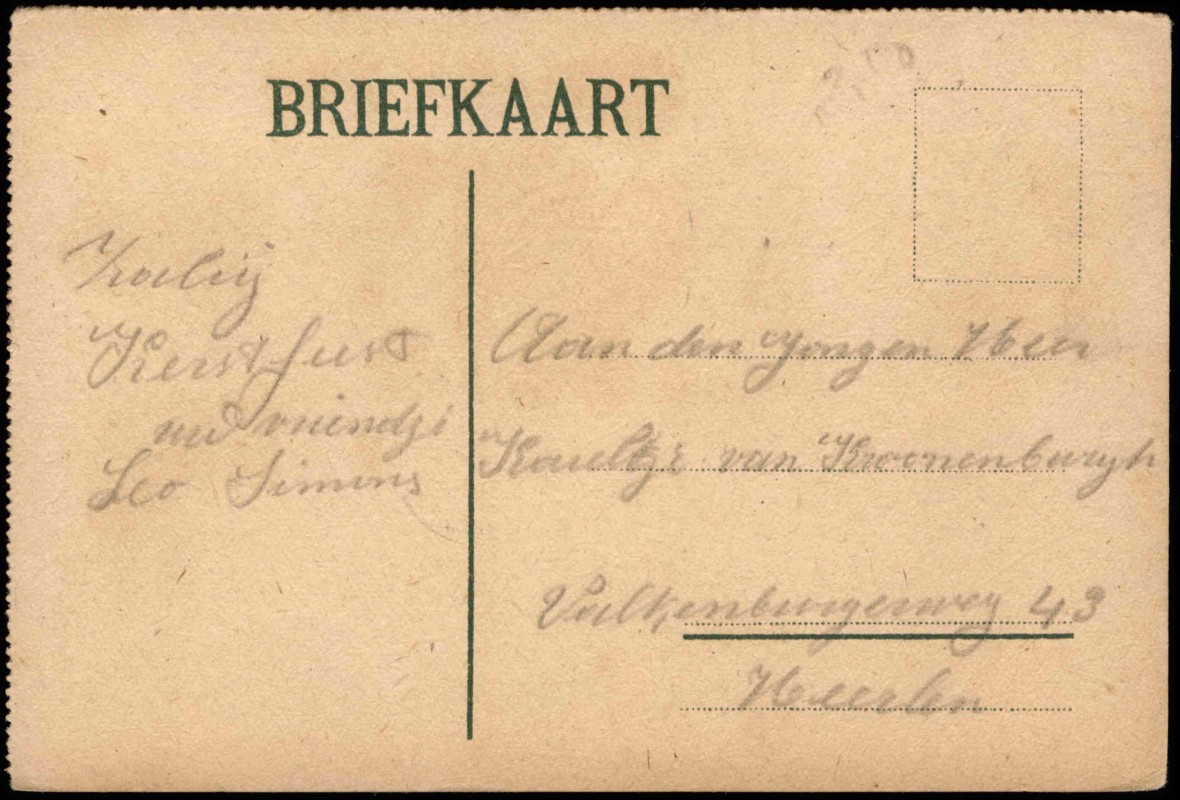 BRIEFKAART
Zalig
Kerstfeest
uw vriendje
Leo Simons
Aan den Jongen Heer
van Kroonenburgh
Valkenburgerweg 43
Heerlen